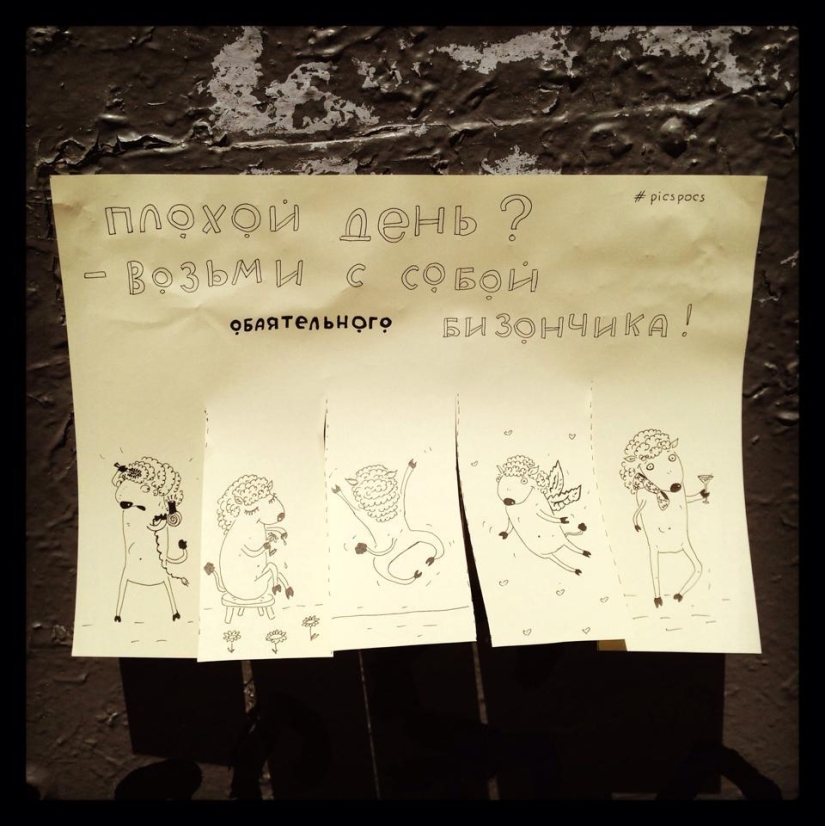 # picspocs
ПЛОХОЙ ДЕНЬ?
– ВОЗЬМИ С СОБОЙ
ОБАЯТЕЛЬНОГО БИЗОНЧИКА!